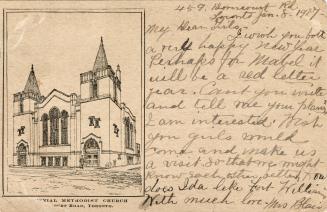 457. Dovercourt Rd
Toronto Jan. 8 - 1907
My Dear Girls -
I wish you both
a very happy New Year
Perhaps for Mabel it
will be a red letter
year. Can't you write
and tell me your plans
I am interested. Wish
you girls would
come and make us
a visit. So that we might
know each other better. How
does Ida like Fort William
With much love Mrs Blair
NIAL METHODIST CHURCH
ROAD, TORONTO.